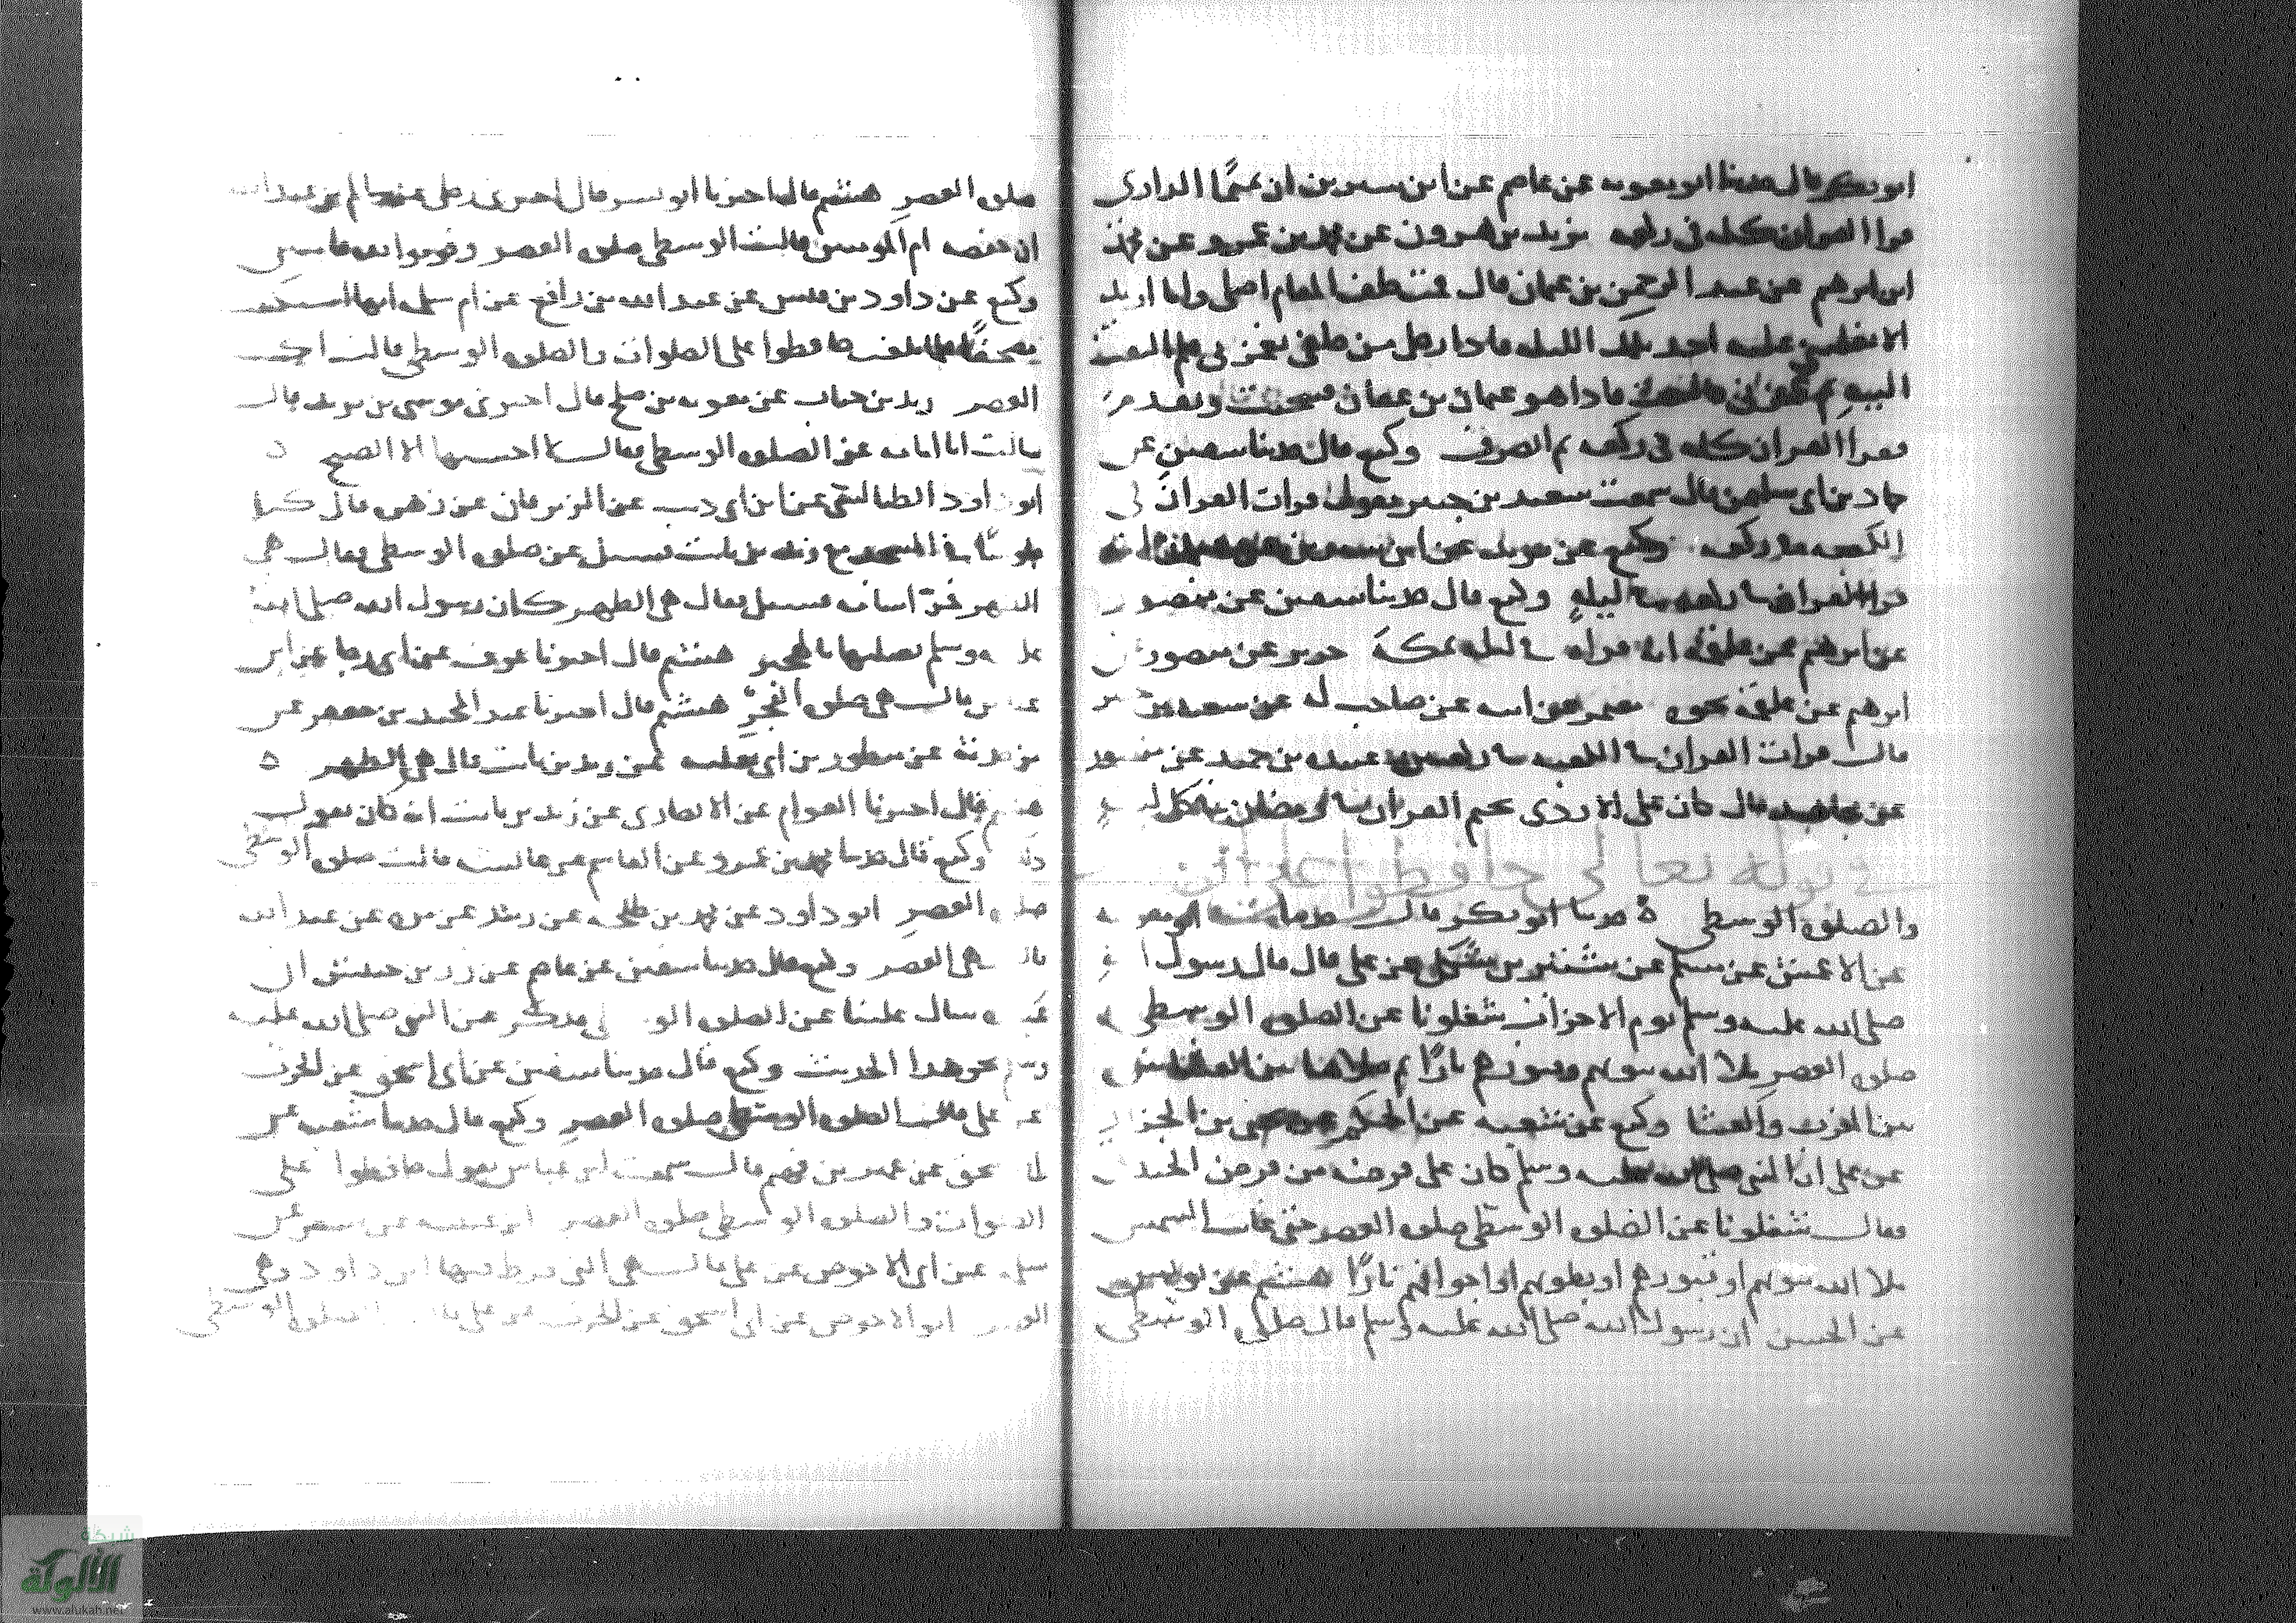 ابو بكر قال حدثنا ابو معويه عن عاصم عن ابن سيرين ان تميمًا الداري
قرا القران كله في ركعه يزيد بن هرون عن محمد بن عمرو عن محمد
ابن ابرهيم عن عبد الرحمن بن عثمان قال قمت خلف المقام اصلي وانا اريد
الا يغلبني عليه احد تلك الليله فاذا رجل من خلفي يغمزني فلم التفت
اليه ثم غمزني فالتفت فاذا هو عثمان بن عفان فتنحيت وتقدم
فقرا القران كله في ركعه ثم انصرف وكيع قال حدثنا سفين عن
حماد بن ابي سليمن قال سمعت سعيد بن جبير يقول قرات القران في
الكعبه في ركعه وكيع عن يزيد عن ابن سيرين
قرا القران في ركعه في ليلهٍ وكيع قال حدثنا سفين عن منصور
عن ابرهيم عن علقمه انه قراه في ليله بمكة جرير عن منصور عن
ابرهيم عن علقمة نحوه معتمر عن ابيه عن صاحب له عن سعيد بن جبير
قال قرات القران في الكعبه في ركعتين عبيده بن حميد عن منصور
عن مجاهد قال كان علي الازدي يختم القران في رمضان في كل ليله
في قوله تعالى حافظوا على الصلوات
والصلوه الوسطى حدثنا ابو بكر قال حدثنا ابو معويه
عن الاعمش عن مسلم عن شتير بن شكل عن علي قال قال رسول الله
صلى الله عليه وسلم يوم الاحزاب شغلونا عن الصلوه الوسطى
صلوه العصر ملا الله بيوتهم وقبورهم نارًا ثم صلاها بين العشائين
بين المغرب والعشا وكيع عن شعبه عن الحكم عن يحيى بن الجزار
عن علي ان النبي صلى الله عليه وسلم كان على فرضه من فرض الخندق
فقال شغلونا عن الصلوه الوسطى صلوه العصر حتى غابت الشمس
ملا الله بيوتهم او قبورهم او بطونهم او اجوافهم نارًا هشيم عن يونس
عن الحسن ان رسول الله صلى الله عليه وسلم قال صلوه الوسطى
صلوه العصر هشيم قال اخبرنا ابو بشر قال اخبرني رجل عن سالم بن عبد الله
ان حفصه ام المومنين قالت الوسطى صلوه العصر وقوموا لله قانتين
وكيع عن داود بن قيس عن عبد الله بن رافع عن ام سلمه انها استكتبت
مصحفًا فلما بلغت حافظوا على الصلوات والصلوه الوسطى قالت اكتب
العصر زيد بن حباب عن معويه بن صلح قال اخبرني موسى بن يزيد قال
سالت ابا امامه عن الصلوه الوسطى فقال لا احسبها الا الصبح
ابو داود الطيالسي عن ابن ابي ذيب عن الزبرقان عن زهره قال كنا
جلوسًا في المسجد مع زيد بن ثابت فسئل عن صلوه الوسطى فقال هي
الظهر فمر اسامه فسئل فقال هي الظهر كان رسول الله صلى الله
عليه وسلم يصليها بالهجير هشيم قال اخبرنا عوف عن ابي رجا عن ابن
عباس قال هي صلوه الفجر هشيم قال اخبرنا عبد الحميد بن جعفر عن
عن زيد بن ثابت قال هي الظهر
هشيم قال اخبرنا العوام عن الانصاري عن زيد بن ثابت انه كان يقول
ذلك وكيع قال حدثنا محمد بن عمرو عن القاسم عن عائشه قالت صلوه الوسطى
صلوه العصر ابو داود عن محمد بن طلحه عن زبيد عن مره عن عبد الله
قال هي العصر وكيع قال حدثنا سفين عن عاصم عن زر بن حبيش ان
عبيده سال عليًا عن الصلوه الوسطى فذكر عن النبي صلى الله عليه
وسلم نحو هذا الحديث وكيع قال حدثنا سفين عن ابي اسحق عن الحرث
عن علي قال الصلوه الوسطى صلوه العصر وكيع قال حدثنا شعبه عن
ابي اسحق عن عمير بن فهم قال سمعت ابن عباس يقول حافظوا على
الصلوات والصلوه الوسطى صلوه العصر ابن عيينه عن مسعر عن
سلمه عن ابي الاحوص عن علي قال هي التي فرط فيها ابن داود وهي
العصر ابو الاحوص عن ابي اسحق عن الحرث عن علي قال الصلوه الوسطى
شبكة
الألوكة
www.alukah.net